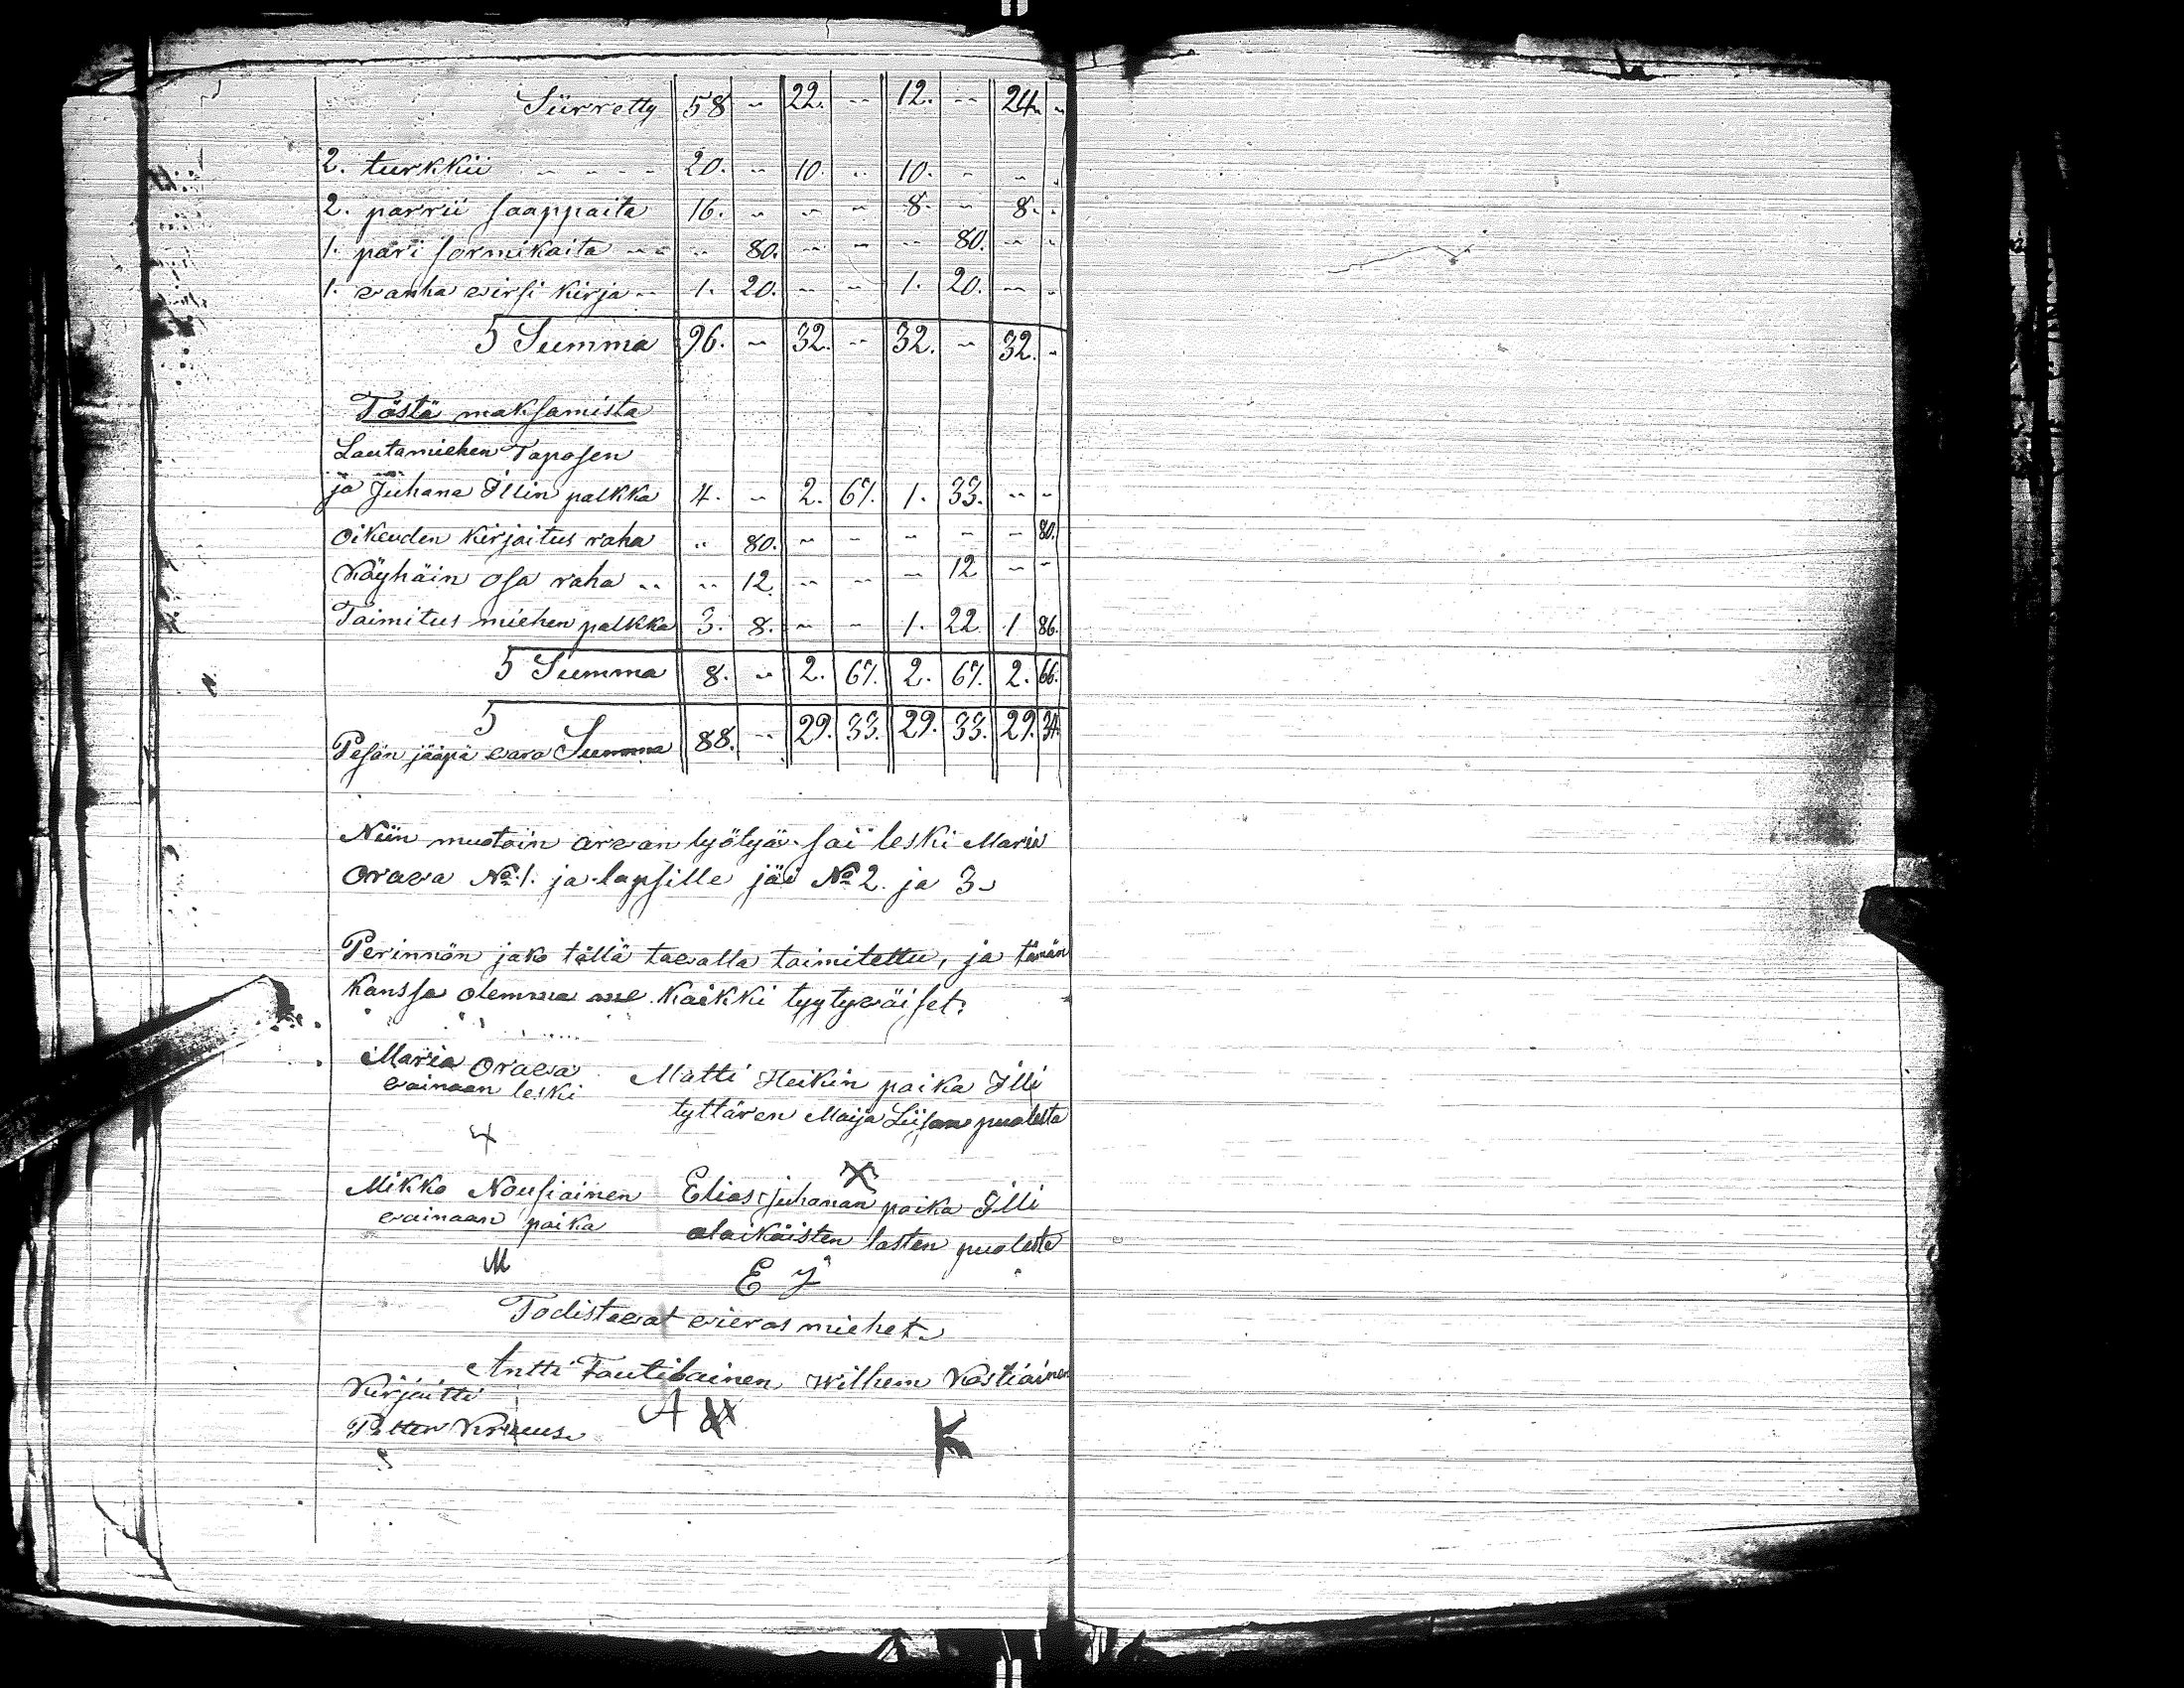 Siirretty 58 " 22. " 12. " 24. "
2. turkkii " " " " 20. " 10. " 10. " " "
2. parrii saappaita 16. " " " 8. " 8. "
1. pari sormikaita " " " 80. " " " 80. " "
1. vanha virsi kirja " 1. 20. " " 1. 20. " "
Summa 96. " 32. " 32. " 32. "
Tästä maksamista
Lautamiehen Taposen
ja Juhana Illin palkka 4. " 2. 67. 1. 33. " "
oikeuden kirjoitus raha " 80. " " " " " 80.
Käyhäin osa raha " " 12. " " " 12 " "
Taimitus miehen palkka 3. 8. " " 1. 22. 1 86.
Summa 8. " 2. 67. 2. 67. 2. 66.
Pesän jääpä vara Summa 88. " 29. 33. 29. 33. 29. 34.
Niin muotoin arvan lyötyä sai leski Maria
Orava No 1. ja lapsille jäi No 2. ja 3.
Perinnön jako tällä tavalla toimitettu, ja tämän
kanssa olemma me kaikki tyytyväiset.
Maria Orava Matti Heikin poika Illi
vainaan leski tyttären Maija Liisan puolesta
x
x
Mikko Nousiainen Elias Juhanan poika Illi
vainaan poika alaikäisten lasten puolesta
M E J
Todistavat vieras miehet.
Antti Tautiainen Wilhem Kostiainen
Kirjoitti
A K
Petter